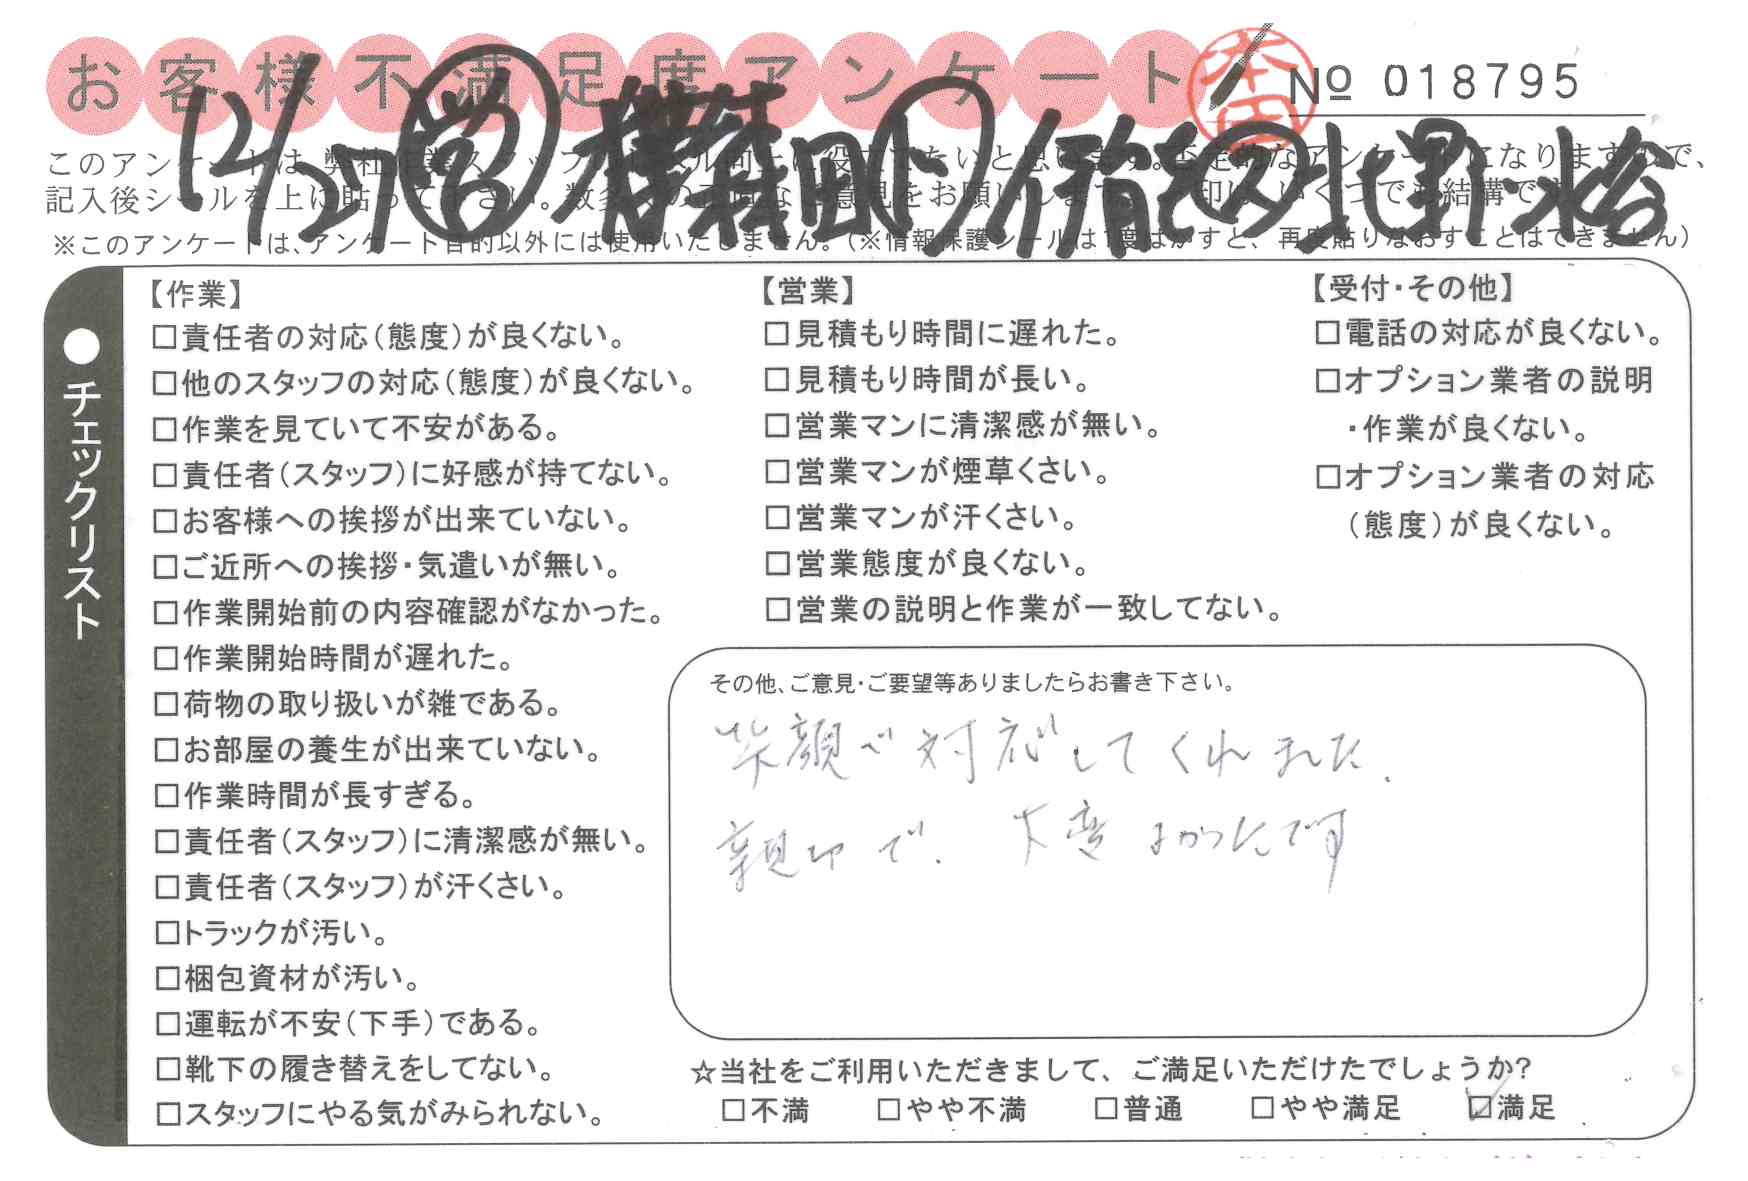 お客様不満足度アンケート
本田
№ 018795
12/27
※このアンケートは、アンケート目的以外には使用いたしません。(※情報保護シールは1度はがすと、再度貼りなおすことはできません)
●チェックリスト
【作業】
□責任者の対応(態度)が良くない。
□他のスタッフの対応(態度)が良くない。
□作業を見ていて不安がある。
□責任者(スタッフ)に好感が持てない。
□お客様への挨拶が出来ていない。
□ご近所への挨拶・気遣いが無い。
□作業開始前の内容確認がなかった。
□作業開始時間が遅れた。
□荷物の取り扱いが雑である。
□お部屋の養生が出来ていない。
□作業時間が長すぎる。
□責任者(スタッフ)に清潔感が無い。
□責任者(スタッフ)が汗くさい。
□トラックが汚い。
□梱包資材が汚い。
□運転が不安(下手)である。
□靴下の履き替えをしてない。
□スタッフにやる気がみられない。
【営業】
□見積もり時間に遅れた。
□見積もり時間が長い。
□営業マンに清潔感が無い。
□営業マンが煙草くさい。
□営業マンが汗くさい。
□営業態度が良くない。
□営業の説明と作業が一致してない。
【受付・その他】
□電話の対応が良くない。
□オプション業者の説明
・作業が良くない。
□オプション業者の対応
(態度)が良くない。
その他、ご意見・ご要望等ありましたらお書き下さい。
笑顔で対応してくれました.
親切で、大変よかったです
☆当社をご利用いただきまして、ご満足いただけたでしょうか?
□不満 □やや不満 □普通 □やや満足 ☑満足